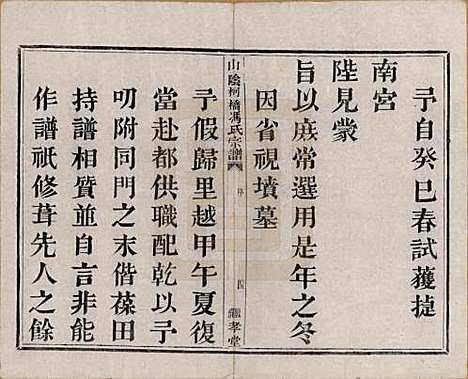 予自癸巳春試獲捷
南宮
陛見蒙
旨以庶常選用是年之冬
因省視墳墓
山陰柯橋馮氏宗譜
序
四
繼孝堂
予假歸里越甲午夏復
當赴都供職配乾以予
叨附同門之末偕葆田
持譜相質並自言非能
作譜祇修葺先人之餘